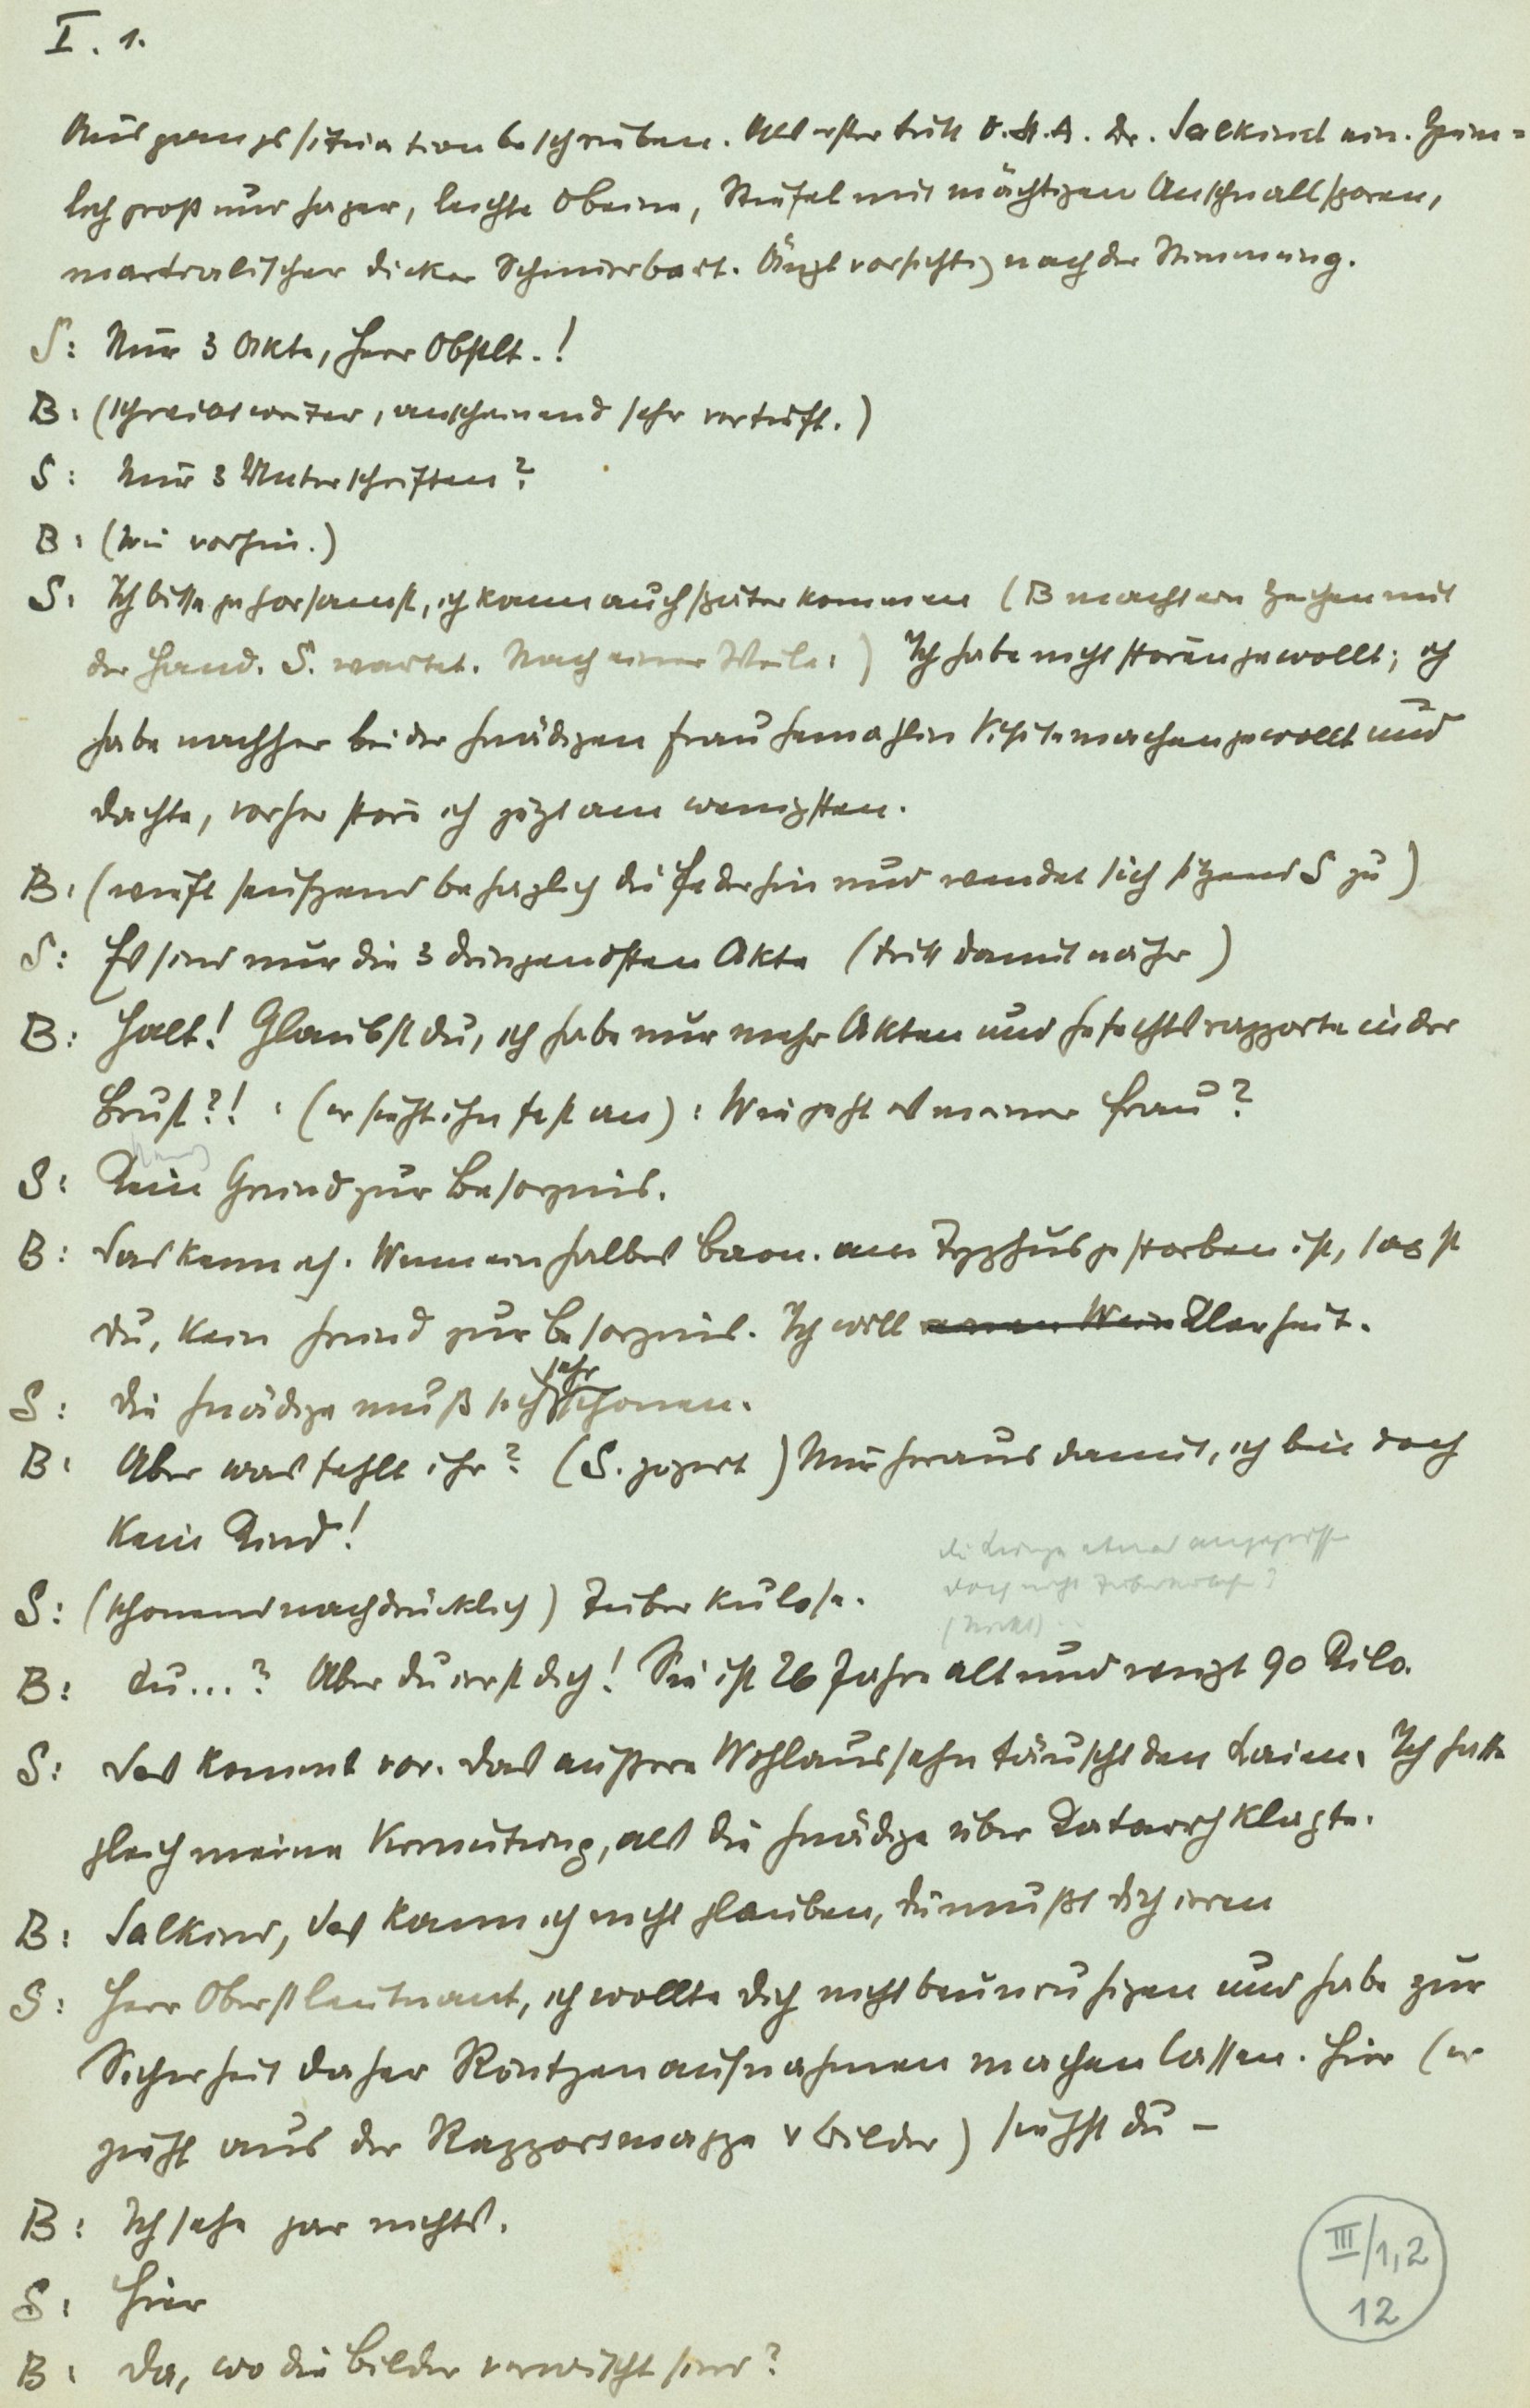 I. 1.
Ausgangssituation beschrieben. Als erster tritt O. St. A. Dr. Salkind ein. Ziem=
lich groß und hager, leichte Obeine, Stiefel mit mächtigen Anschnallsporen,
martialischer dicker Schnurrbart. Äugt vorsichtig nach der Stimmung.
S: Nur 3 Akte, Herr Obstlt.!
B: (schreibt weiter, anscheinend sehr vertieft.)
S: Nur 3 Unterschriften?
B: (Wie vorhin.)
S: Ich bitte gehorsamst, ich kann auch später kommen (B macht ein Zeichen mit
der Hand. S. wartet. Nach einer Weile:) Ich habe nicht stören gewollt; ich
habe nachher bei der gnädigen Frau Gemahlin Visite machen gewollt und
dachte, vorher störe ich jetzt am wenigsten.
B: (wirft seufzend behaglich die Feder hin und wendet sich sitzend S zu)
S: Es sind nur die 3 dringendsten Akte (tritt damit näher)
B: Halt! Glaubst du, ich habe nur mehr Akten und Gefechtsrapporte in der
Brust?! : (er sieht ihn fest an): Wie geht es meiner Frau?
S: Kein Grund zur Besorgnis.
B: Das kenn ich. Wenn ein halbes Baon. am Typhus gestorben ist, sagst
du, kein Grund zur Besorgnis. Ich will Klarheit.
S: Die Gnädige muß sich sehr schonen.
B: Aber was fehlt ihr? (S. zögert) Nur heraus damit, ich bin doch
kein Kind!
die Lunge etwas angegriffen
doch nicht Tuberkulose?
(Nickt)
S: (schonend nachdrücklich) Tuberkulose.
B: Du...? Aber du irrst dich! Sie ist 26 Jahre alt und wiegt 90 Kilo.
S: Das kommt vor. Das äußere Wohlaussehn täuscht den Laien. Ich hatte
gleich meine Vermutung, als die Gnädige über Katarrh klagte.
B: Salkind, das kann ich nicht glauben, du mußt dich irren
S: Herr Oberstleutnant, ich wollte dich nicht beunruhigen und habe zur
Sicherheit daher Röntgenaufnahmen machen lassen. Hier (er
zieht aus der Rapportsmappe v Bilder) siehst du –
B: Ich sehe gar nichts.
S: Hier
B: Da, wo die Bilder verwischt sind?
III/1,2
12